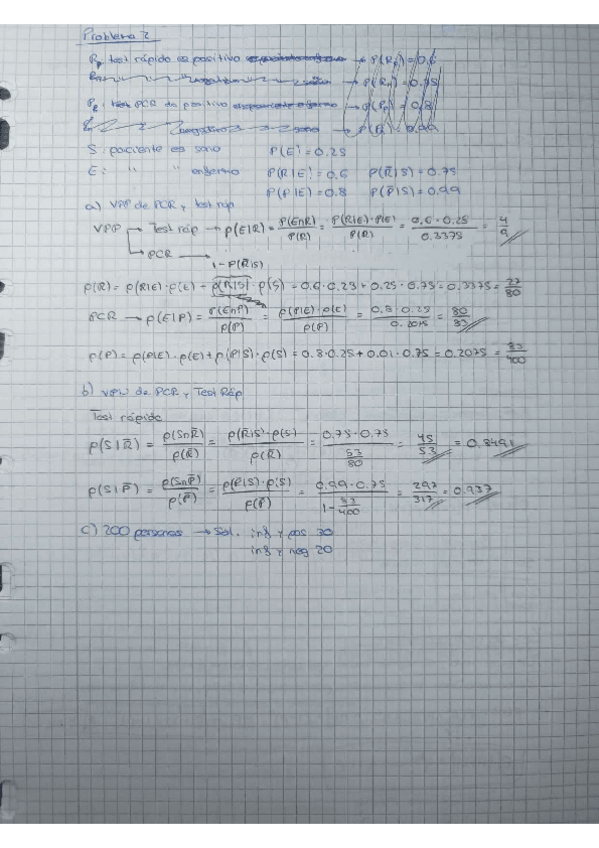 Problema 2
R: test rápido es positivo → P(R) = 0,6
→ P(R) = 0.75
P: test PCR da positivo → P(P) = 0,8
→ P(P) = 0,99
S: paciente es sano P(E) = 0.25
E: " " enfermo P(R|E) = 0,6 P(R̄|S) = 0.75
P(P|E) = 0.8 P(P̄|S) = 0,99
a) VPP de PCR y test ráp
VPP → Test ráp → p(E|R) = P(E∩R)/P(R) = P(R|E)·P(E)/P(R) = 0,6·0.25/0.3375 = 4/9
→ PCR 1-P(R̄|S)
p(R) = p(R|E)·p(E) + p(R|S)·p(S) = 0.6·0.25 + 0.25·0.75 = 0.3375 = 27/80
PCR → p(E|P) = P(E∩P)/p(P) = p(P|E)·p(E)/p(P) = 0.8·0.25/0.2075 = 80/83
p(P) = p(P|E)·p(E) + p(P|S)·p(S) = 0.8·0.25 + 0.01·0.75 = 0.2075 = 83/400
b) VPN de PCR y Test Ráp
Test rápido
p(S|R̄) = p(S∩R̄)/p(R̄) = p(R̄|S)·p(S)/p(R̄) = 0.75·0.75/(53/80) = 45/53 = 0.8491
p(S|P̄) = p(S∩P̄)/p(P̄) = p(P̄|S)·p(S)/p(P̄) = 0.99·0.75/(1-83/400) = 297/317 = 0.937
c) 200 personas → Sol. inf y pos 30
inf y neg 20